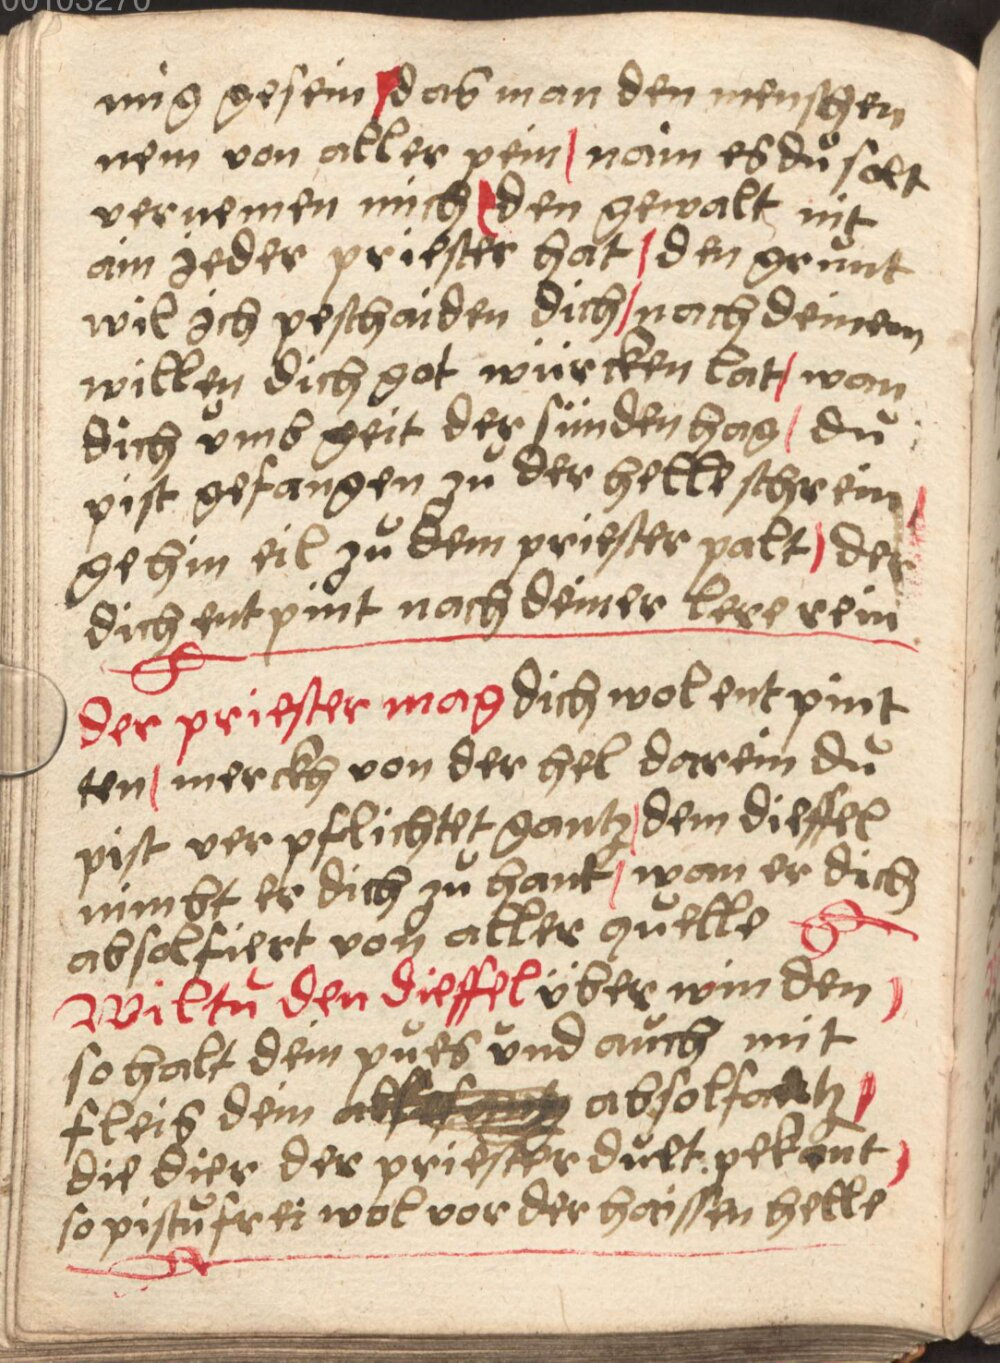 00103270
mig gesein / das man den menschen
nem von aller pein / nain es dů solt
vernemen mich / den gewalt nit
ain jeder priester hat / den grůnt
wil ich peschaiden dich / nach deinem
willen dich got würcken lat / wan
dich ůmb geit der sünden hag / dů
pist gefangen zů der helle schrein /
ge hin eil zů dem priester palt / der
dich entpint nach deiner lere rein
der priester mag dich wol entpint
ten / merckh von der hel darein dů
pist verpflichtet gantz / dem dieffel
nimbt er dich zů hant / wan er dich
absolfiert von aller qůelle
Wiltů den dieffel über winden /
so halt dein půes ůnd aůch mit
fleis dein absolfantz /
die dier der priester důet pekant /
so pistů frei wol vor der haissen helle